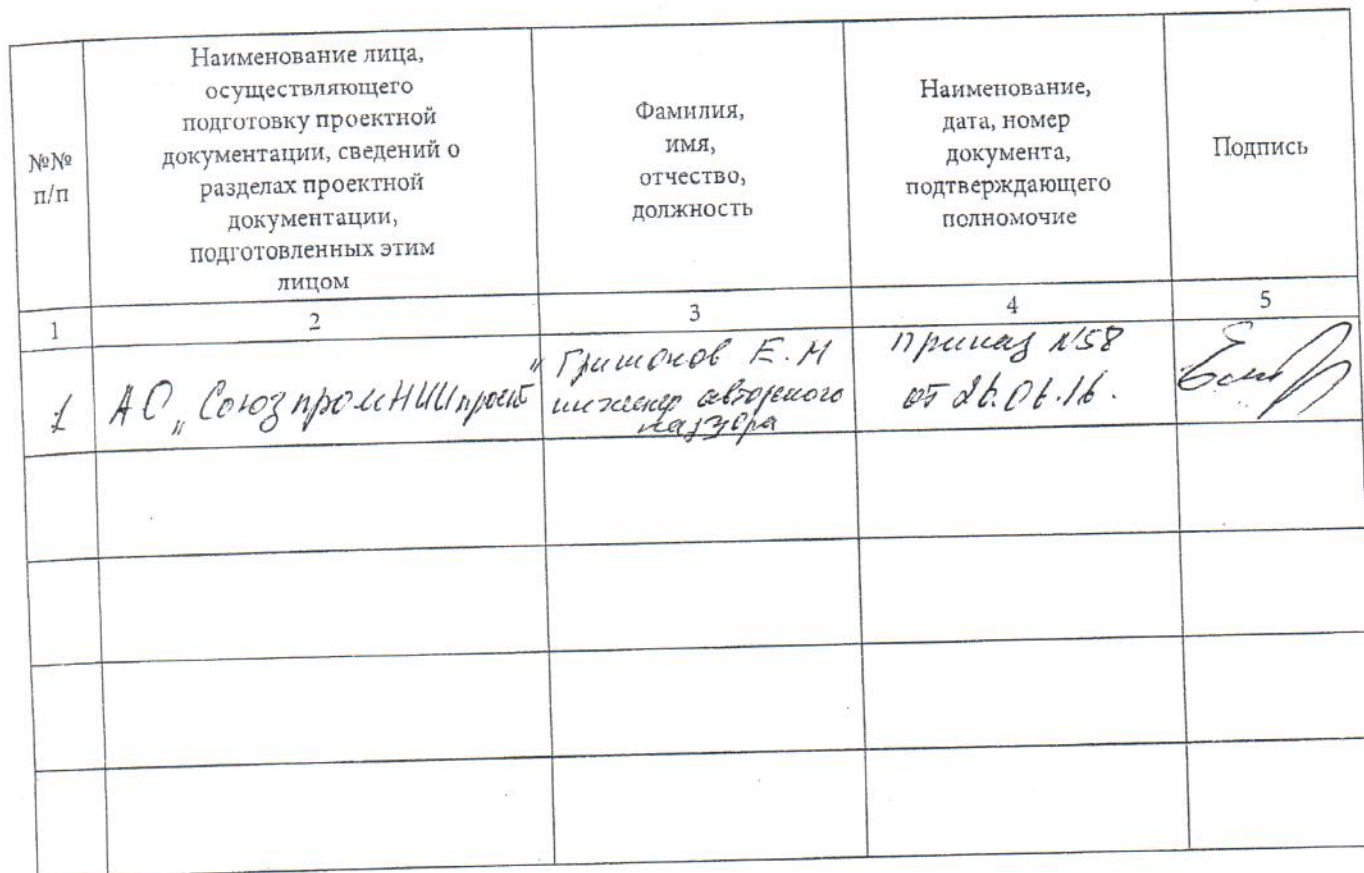 №№
п/п
Наименование лица,
осуществляющего
подготовку проектной
документации, сведений о
разделах проектной
документации,
подготовленных этим
лицом
Фамилия,
имя,
отчество,
должность
Наименование,
дата, номер
документа,
подтверждающего
полномочие
Подпись
1
2
3
4
5
1
АО „СоюзпромНИИпроект"
Гришонов Е.М
инженер авторского
надзора
приказ №58
от 26.06.16.